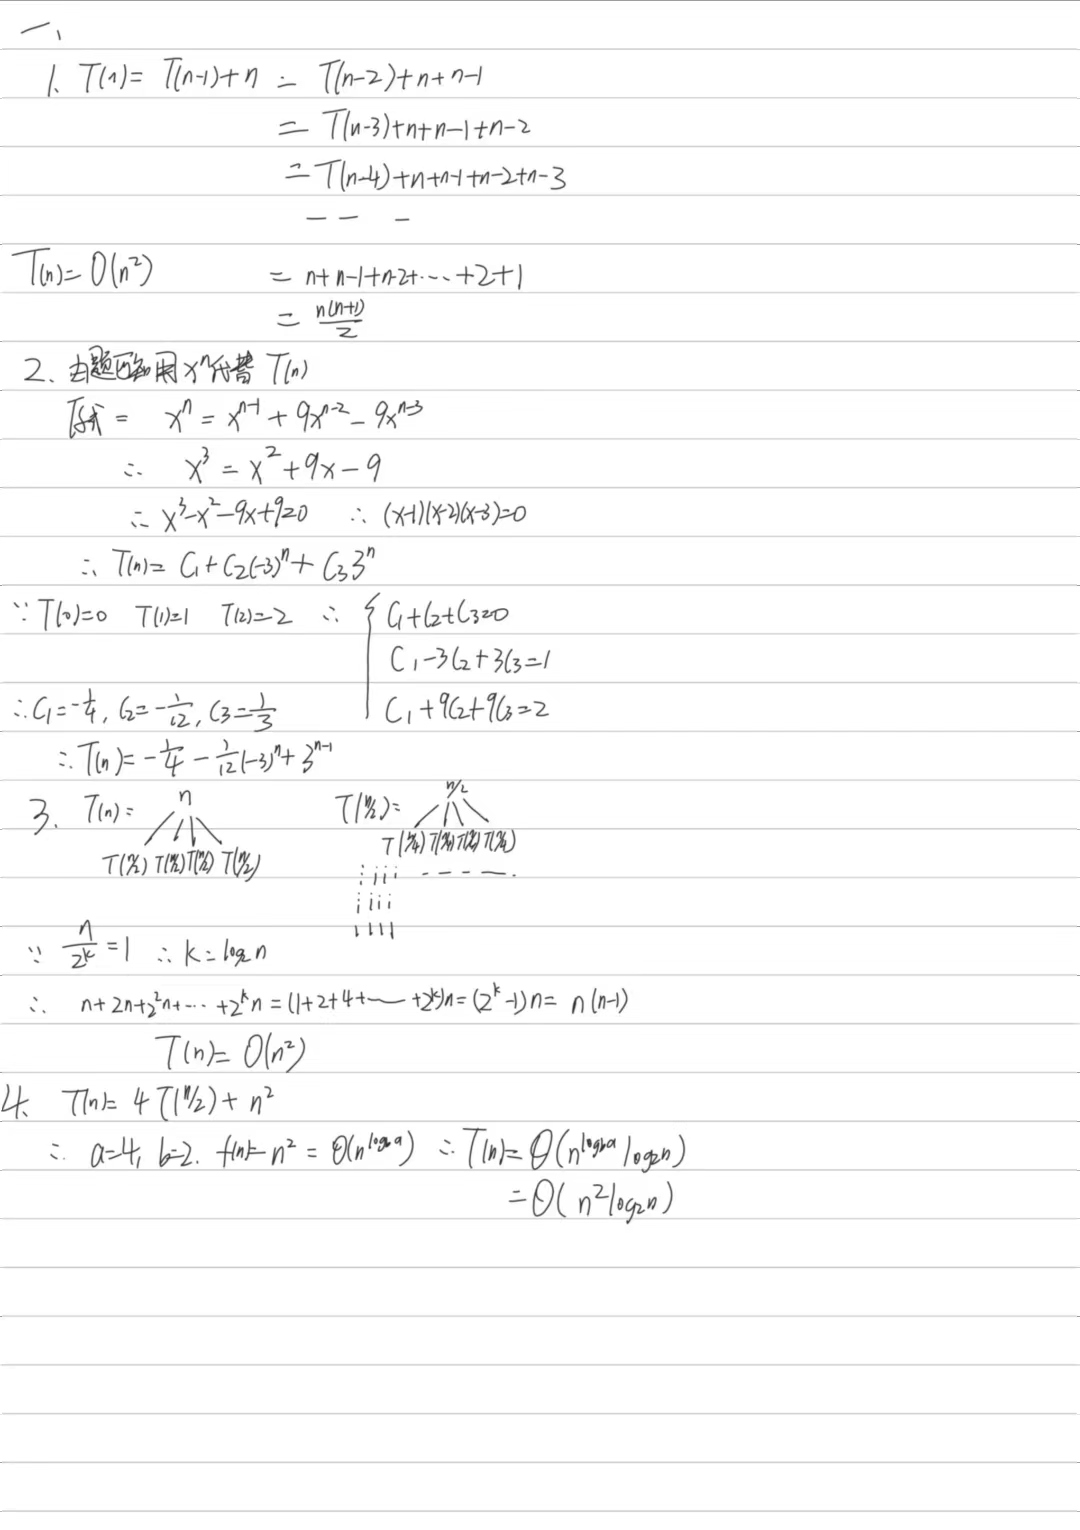 一、
1. T(n)= T(n-1)+n = T(n-2)+n+n-1
= T(n-3)+n+n-1+n-2
= T(n-4)+n+n-1+n-2+n-3
— — -
T(n)= O(n²) = n+n-1+n-2+…+2+1
= n(n+1)/2
2、由题可知用xⁿ代替 T(n)
原式 = xⁿ = xⁿ⁻¹ + 9xⁿ⁻² - 9xⁿ⁻³
∴ x³ = x² + 9x - 9
∴ x³-x²-9x+9=0 ∴ (x-1)(x-2)(x-3)=0
∴ T(n)= C₁+C₂(-3)ⁿ+ C₃3ⁿ
∵ T(0)=0 T(1)=1 T(2)=2 ∴ { C₁+C₂+C₃=0
C₁-3C₂+3C₃=1
∴C₁=-1/4, C₂=-1/12, C₃=1/3 C₁+9C₂+9C₃=2
∴T(n)=-1/4-1/12(-3)ⁿ+3ⁿ⁻¹
3. T(n)= n T(n/2)= n/2
T(n/2) T(n/2) T(n/2) T(n/2) T(n/4) T(n/4) T(n/4) T(n/4)
1 1 1 1
∵ n/2ᵏ=1 ∴ k=log₂n
∴ n+2n+2²n+…+2ᵏn=(1+2+4+…+2ᵏ)n=(2ᵏ-1)n= n(n-1)
T(n)= O(n²)
4. T(n)= 4T(n/2)+ n²
∴ a=4, b=2. f(n)= n² = Θ(n^(log_b a)) ∴ T(n)= Θ(n^(log_b a) log₂n)
=Θ( n²log₂n)